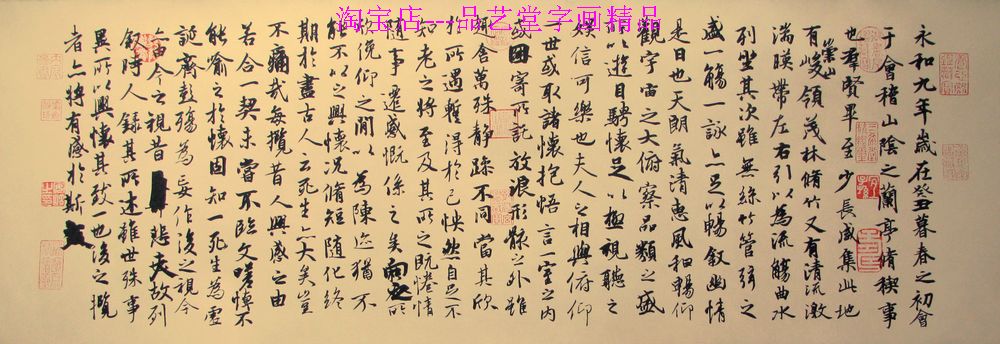 淘宝店---品艺堂字画精品
永和九年歲在癸丑暮春之初會
于會稽山陰之蘭亭脩稧事
也羣賢畢至少長咸集此地
有崇山峻領茂林脩竹又有清流激
湍暎帶左右引以為流觴曲水
列坐其次雖無絲竹管弦之
盛一觴一詠亦足以暢敘幽情
是日也天朗氣清惠風和暢仰
觀宇宙之大俯察品類之盛
所以遊目騁懷足以極視聽之
娛信可樂也夫人之相與俯仰
一世或取諸懷抱悟言一室之內
或因寄所託放浪形骸之外雖
趣舍萬殊静躁不同當其欣
於所遇暫得於己怏然自足不
知老之將至及其所之既惓情
隨事遷感慨係之矣向之所
欣俛仰之間以為陳迹猶不
能不以之興懷況脩短隨化終
期於盡古人云死生亦大矣豈
不痛哉每攬昔人興感之由
若合一契未嘗不臨文嗟悼不
能喻之於懷固知一死生為虛
誕齊彭殤為妄作後之視今
亦由今之視昔悲夫故列
敘時人錄其所述雖世殊事
異所以興懷其致一也後之攬
者亦將有感於斯文